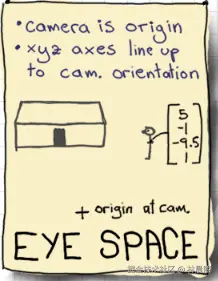 •camera is origin
•xyz axes line up
to cam. orientation
5
-1
-9.5
1
+ origin at cam.
EYE SPACE